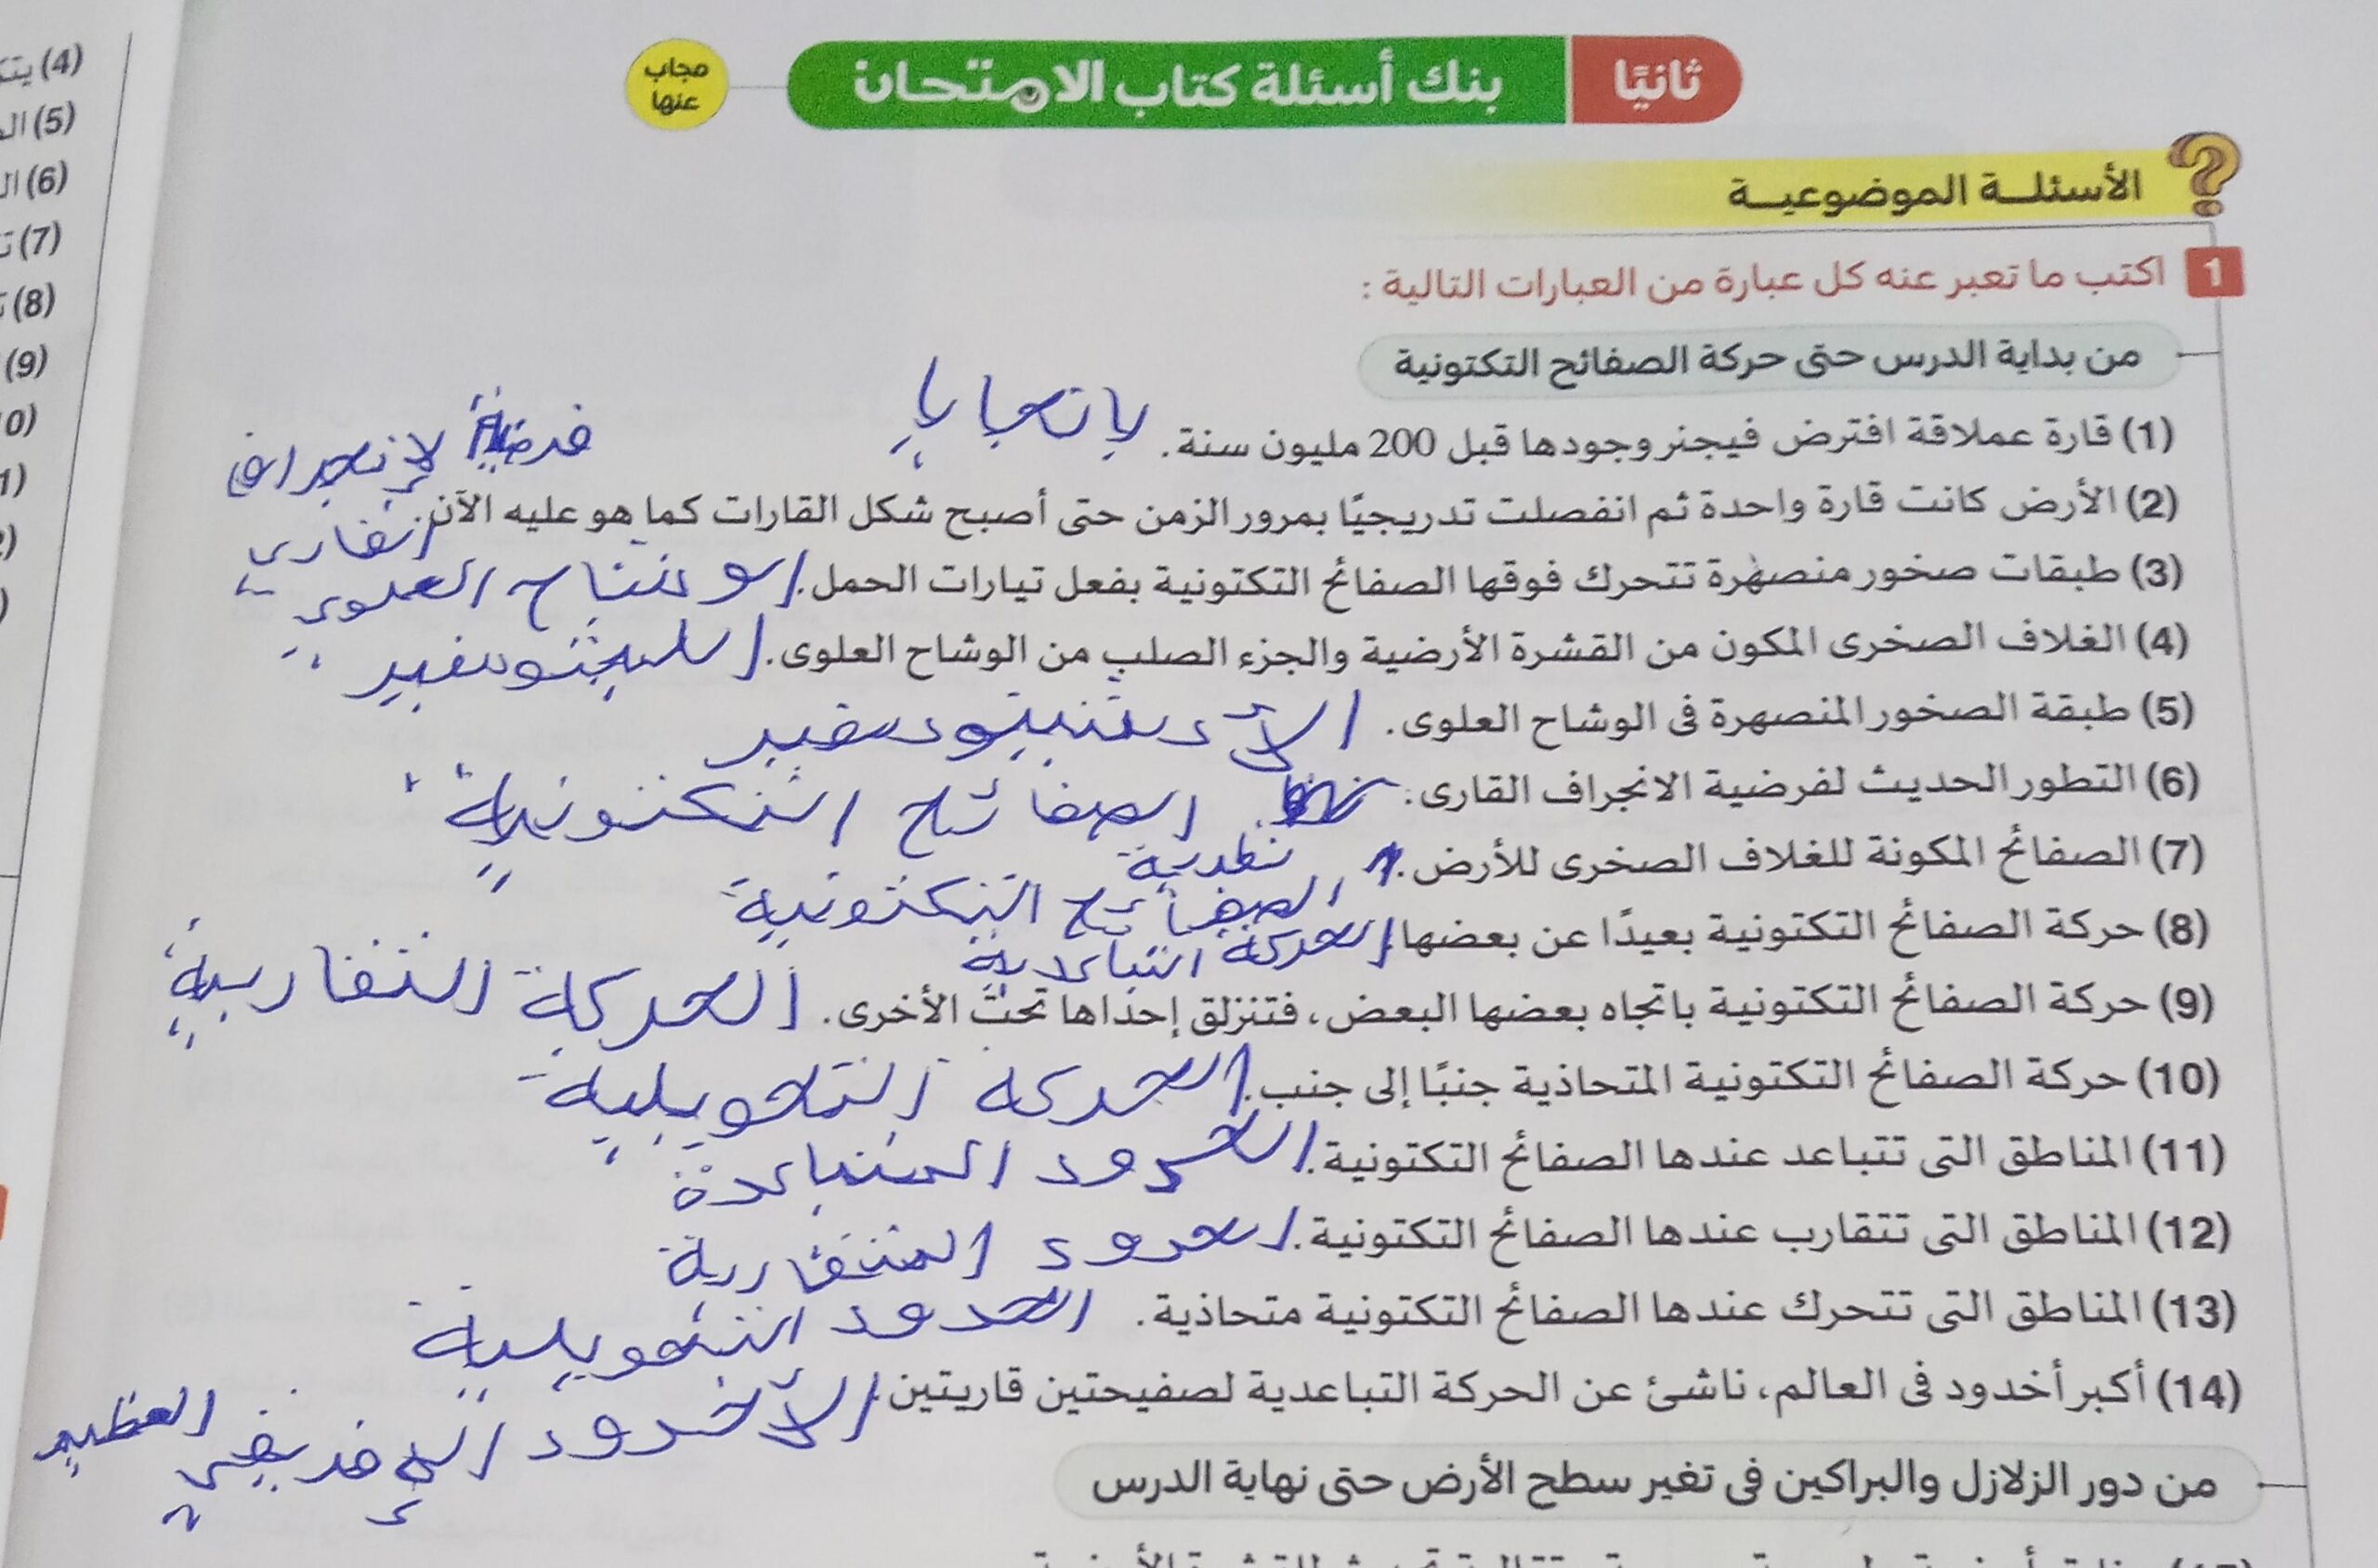 ثانيًا بنك أسئلة كتاب الامتحان مجاب عنها
الأسئلة الموضوعية
1 اكتب ما تعبر عنه كل عبارة من العبارات التالية :
من بداية الدرس حتى حركة الصفائح التكتونية
(1) قارة عملاقة افترض فيجنر وجودها قبل 200 مليون سنة. بانجايا
فرضية الإنجراف
(2) الأرض كانت قارة واحدة ثم انفصلت تدريجيًا بمرور الزمن حتى أصبح شكل القارات كما هو عليه الآن.
القاري
(3) طبقات صخور منصهرة تتحرك فوقها الصفائح التكتونية بفعل تيارات الحمل. الوشاح العلوي
(4) الغلاف الصخرى المكون من القشرة الأرضية والجزء الصلب من الوشاح العلوى. الليثوسفير
(5) طبقة الصخور المنصهرة فى الوشاح العلوى.
(6) التطور الحديث لفرضية الانجراف القارى. الصفائح التكتونية
نظرية
(7) الصفائح المكونة للغلاف الصخرى للأرض. الصفائح التكتونية
(8) حركة الصفائح التكتونية بعيدًا عن بعضها. الحركة التباعدية
(9) حركة الصفائح التكتونية باتجاه بعضها البعض، فتنزلق إحداها تحت الأخرى. الحركة التقاربية
(10) حركة الصفائح التكتونية المتحاذية جنبًا إلى جنب. الحركة التحويلية
(11) المناطق التى تتباعد عندها الصفائح التكتونية. الحدود المتباعدة
(12) المناطق التى تتقارب عندها الصفائح التكتونية. الحدود المتقاربة
(13) المناطق التى تتحرك عندها الصفائح التكتونية متحاذية. الحدود التحويلية
(14) أكبر أخدود فى العالم، ناشئ عن الحركة التباعدية لصفيحتين قاريتين. الأخدود الإفريقي العظيم
من دور الزلازل والبراكين فى تغير سطح الأرض حتى نهاية الدرس
(4)
(5)
(6)
(7)
(8)
(9)